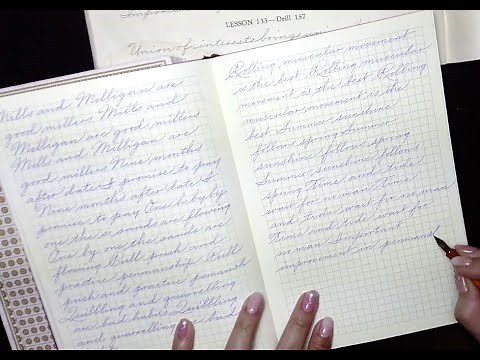 LESSON 133—Drill 157
Union of interests brings uni
Mills and Milligan are
good millers Mills and
Milligan are good millers
Mills and Milligan are
good millers Nine months
after date I promise to pay
Nine months after date I
promise to pay One by
one the sands are flowing
One by one the sands are
flowing Pull push and
practice penmanship Pull
push and practice penmanship
Quibbling and quarrelling
are bad habits Quibbling
and quarrelling are bad
Rolling muscular movement
is the best Rolling muscular
movement is the best Rolling
muscular movement is the
best Summer sunshine
follows spring Summer
sunshine follows spring
Summer sunshine follows
spring Time and tide
wait for no man Time
and tide wait for no man
Time and tide wait for
no man Important
improvement in penmans